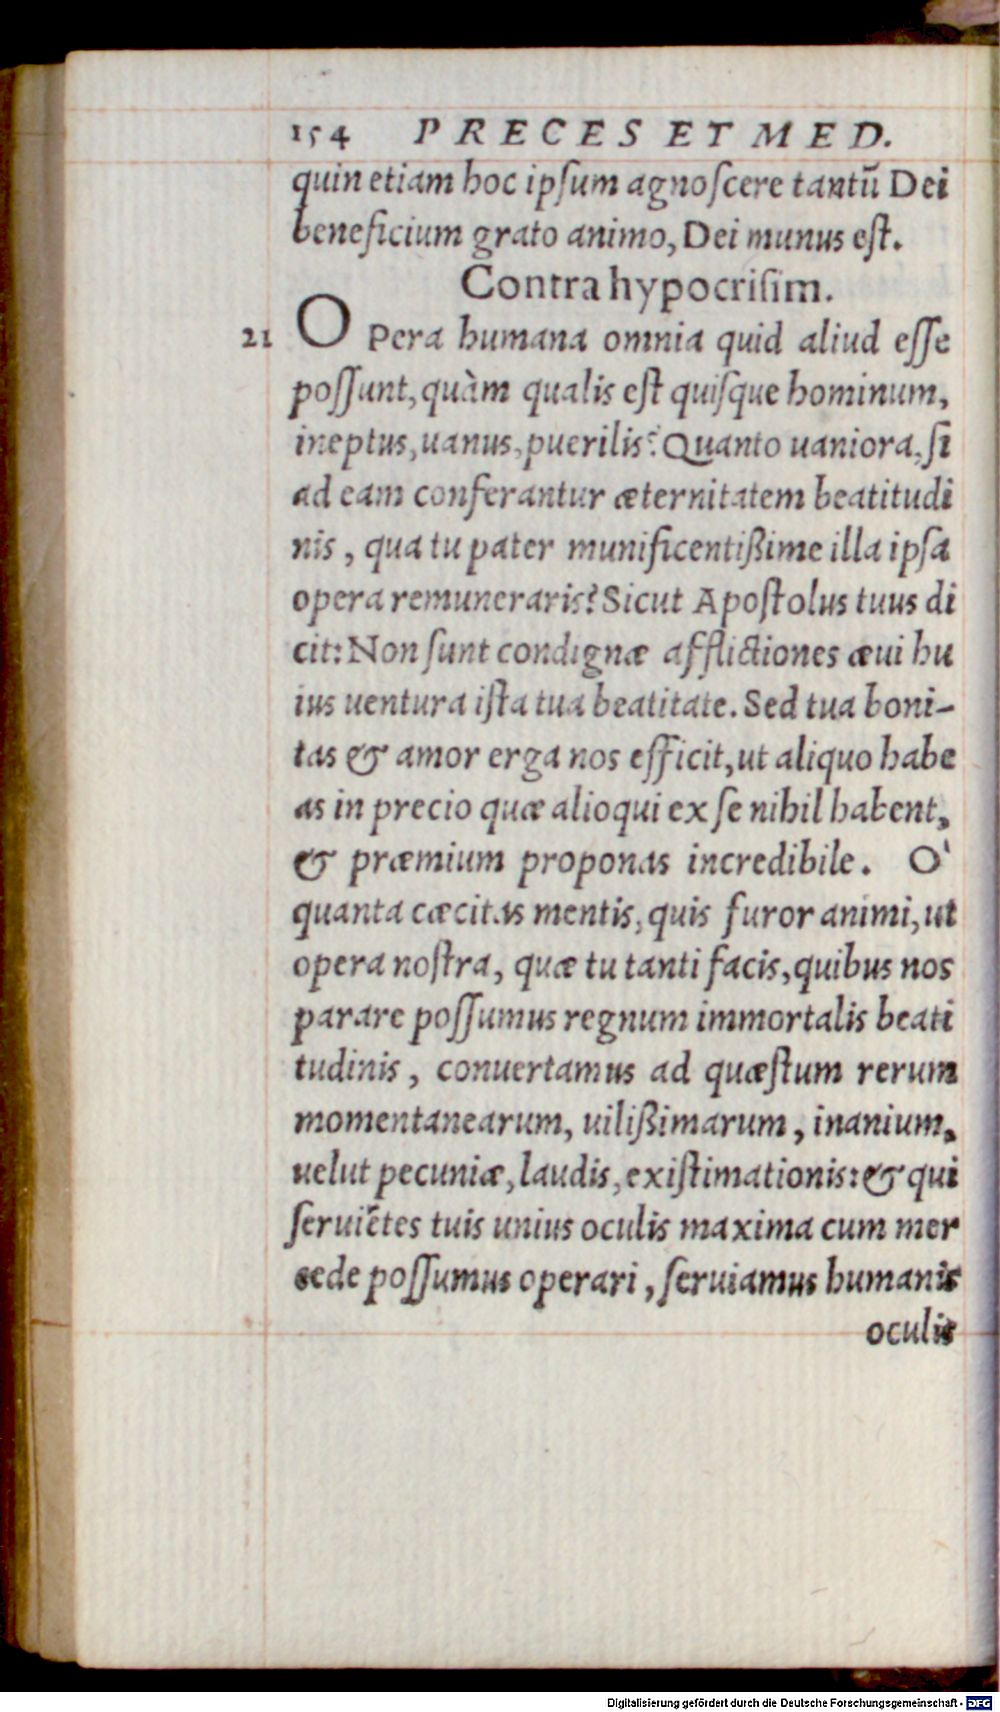 154 PRECES ET MED.
quin etiam hoc ipſum agnoſcere tantū Dei
beneficium grato animo, Dei munus eſt.
Contra hypocriſim.
21 OPera humana omnia quid aliud eſſe
poſſunt, quàm qualis eſt quiſque hominum,
ineptus, uanus, puerilis? Quanto uaniora, ſi
ad eam conferantur æternitatem beatitudi
nis, qua tu pater munificentißime illa ipſa
opera remuneraris? Sicut Apoſtolus tuus di
cit: Non ſunt condignæ afflictiones æui hu
ius uentura iſta tua beatitate. Sed tua boni-
tas & amor erga nos efficit, ut aliquo habe
as in precio quæ alioqui ex ſe nihil habent,
& præmium proponas incredibile. O`
quanta cæcitas mentis, quis furor animi, ut
opera noſtra, quæ tu tanti facis, quibus nos
parare poſſumus regnum immortalis beati
tudinis, conuertamus ad quæſtum rerum
momentanearum, uilißimarum, inanium,
uelut pecuniæ, laudis, exiſtimationis: & qui
ſeruiētes tuis unius oculis maxima cum mer
cede poſſumus operari, ſeruiamus humanis
oculis
Digitalisierung gefördert durch die Deutsche Forschungsgemeinschaft - DFG